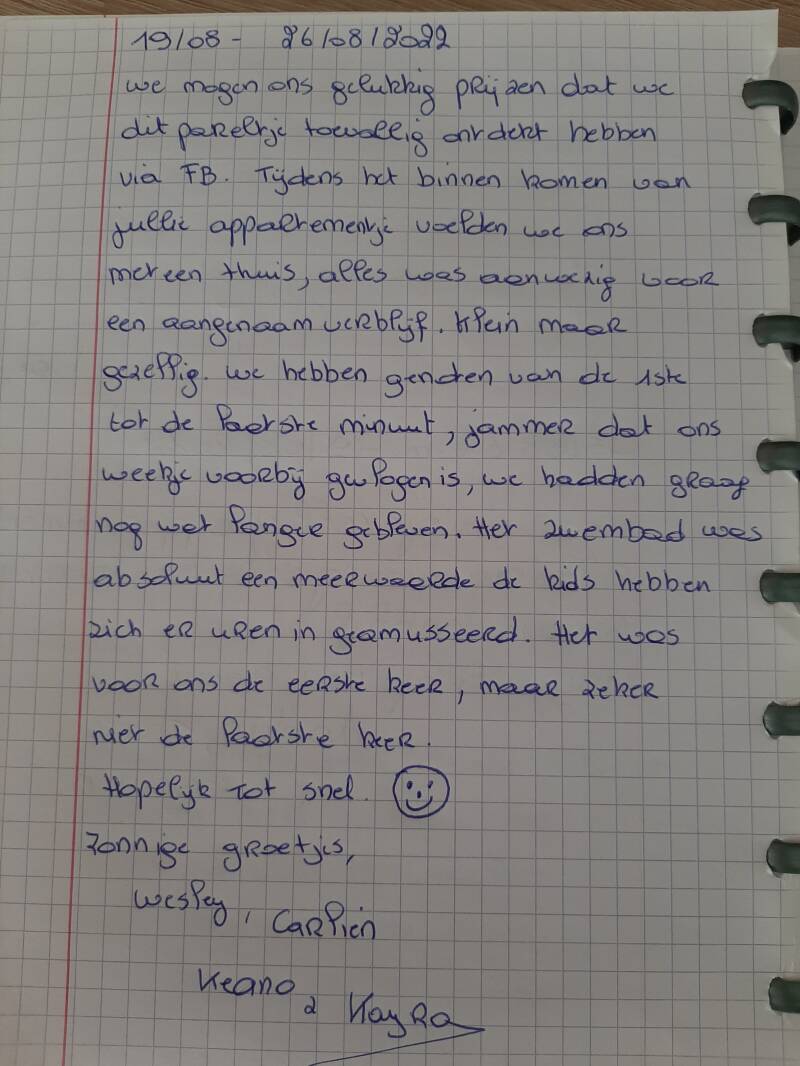 19/08 - 26/08/2022
we mogen ons gelukkig prijzen dat we
dit pareltje toevallig ontdekt hebben
via FB. Tijdens het binnen komen van
jullie appartementje voelden we ons
meteen thuis, alles was aanwezig voor
een aangenaam verblijf. Klein maar
gezellig. we hebben genoten van de 1ste
tot de laatste minuut, jammer dat ons
weekje voorbij gevlogen is, we hadden graag
nog wat langer gebleven. Het zwembad was
absoluut een meerwaarde de kids hebben
zich er uren in geamusseerd. Het was
voor ons de eerste keer, maar zeker
niet de laatste keer.
Hopelijk tot snel. ☺
Zonnige groetjes,
Wesley, Carlien
Keano & Kayra